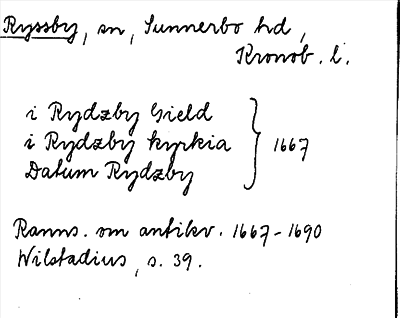 Ryssby, sn, Sunnerbo hd,
Kronob. l.
i Rydzby Gield
i Rydzby kyrkia } 1667
Datum Rydzby
Ranns. om antikv. 1667-1690
Wilstadius, s. 39.